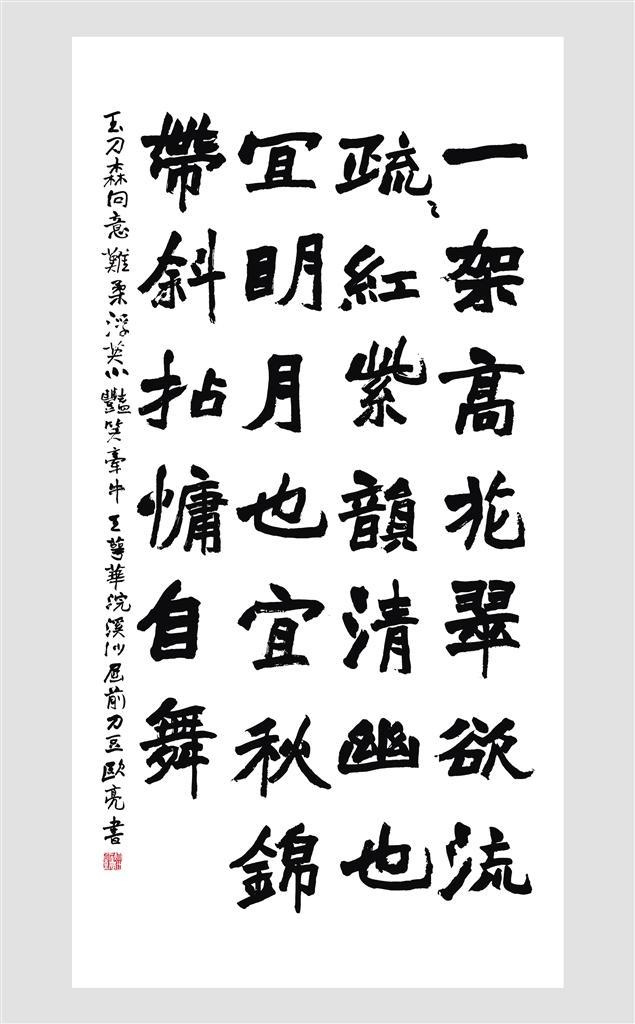 一架高花翠欲流
疏々紅紫韻清幽也
宜明月也宜秋錦
帶斜拈慵自舞
玉刀森向意難柔浮英小豔笑牽牛 王 華浣溪沙 前刀豆歐亮書